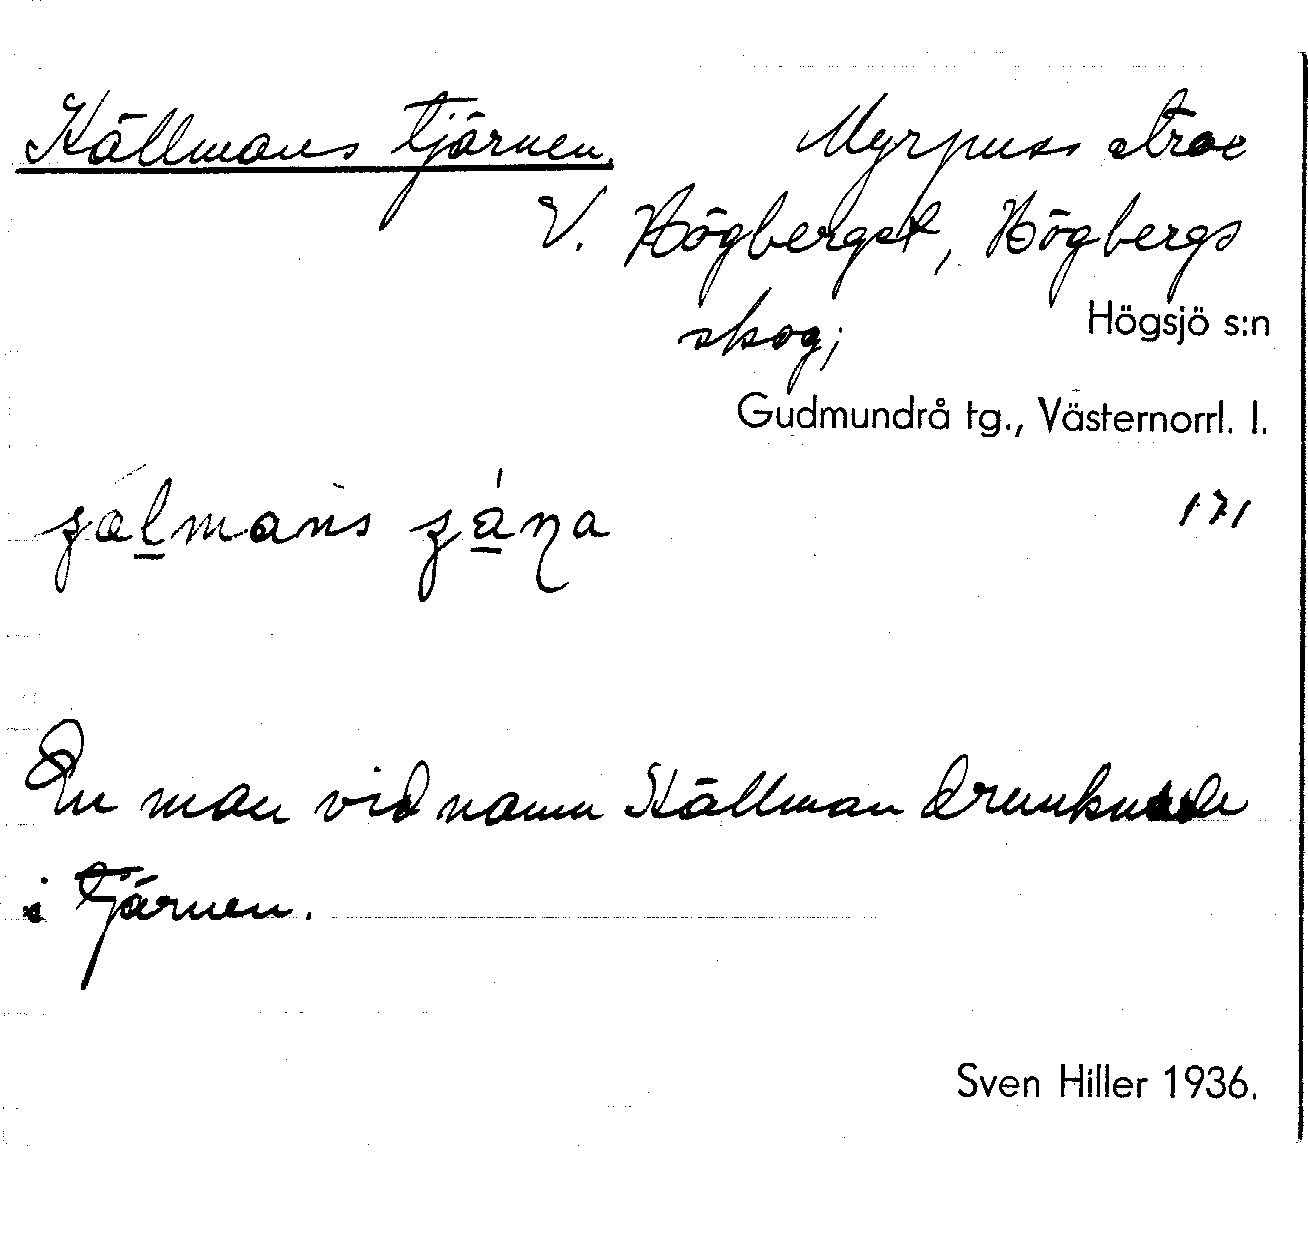 Källmans tjärnen.
Myrpuss strax
V. Högberget, Högbergs
skog;
Högsjö s:n
Gudmundrå tg., Västernorrl. l.
171
En man vid namn Källman drunknade
i tjärnen.
Sven Hiller 1936.